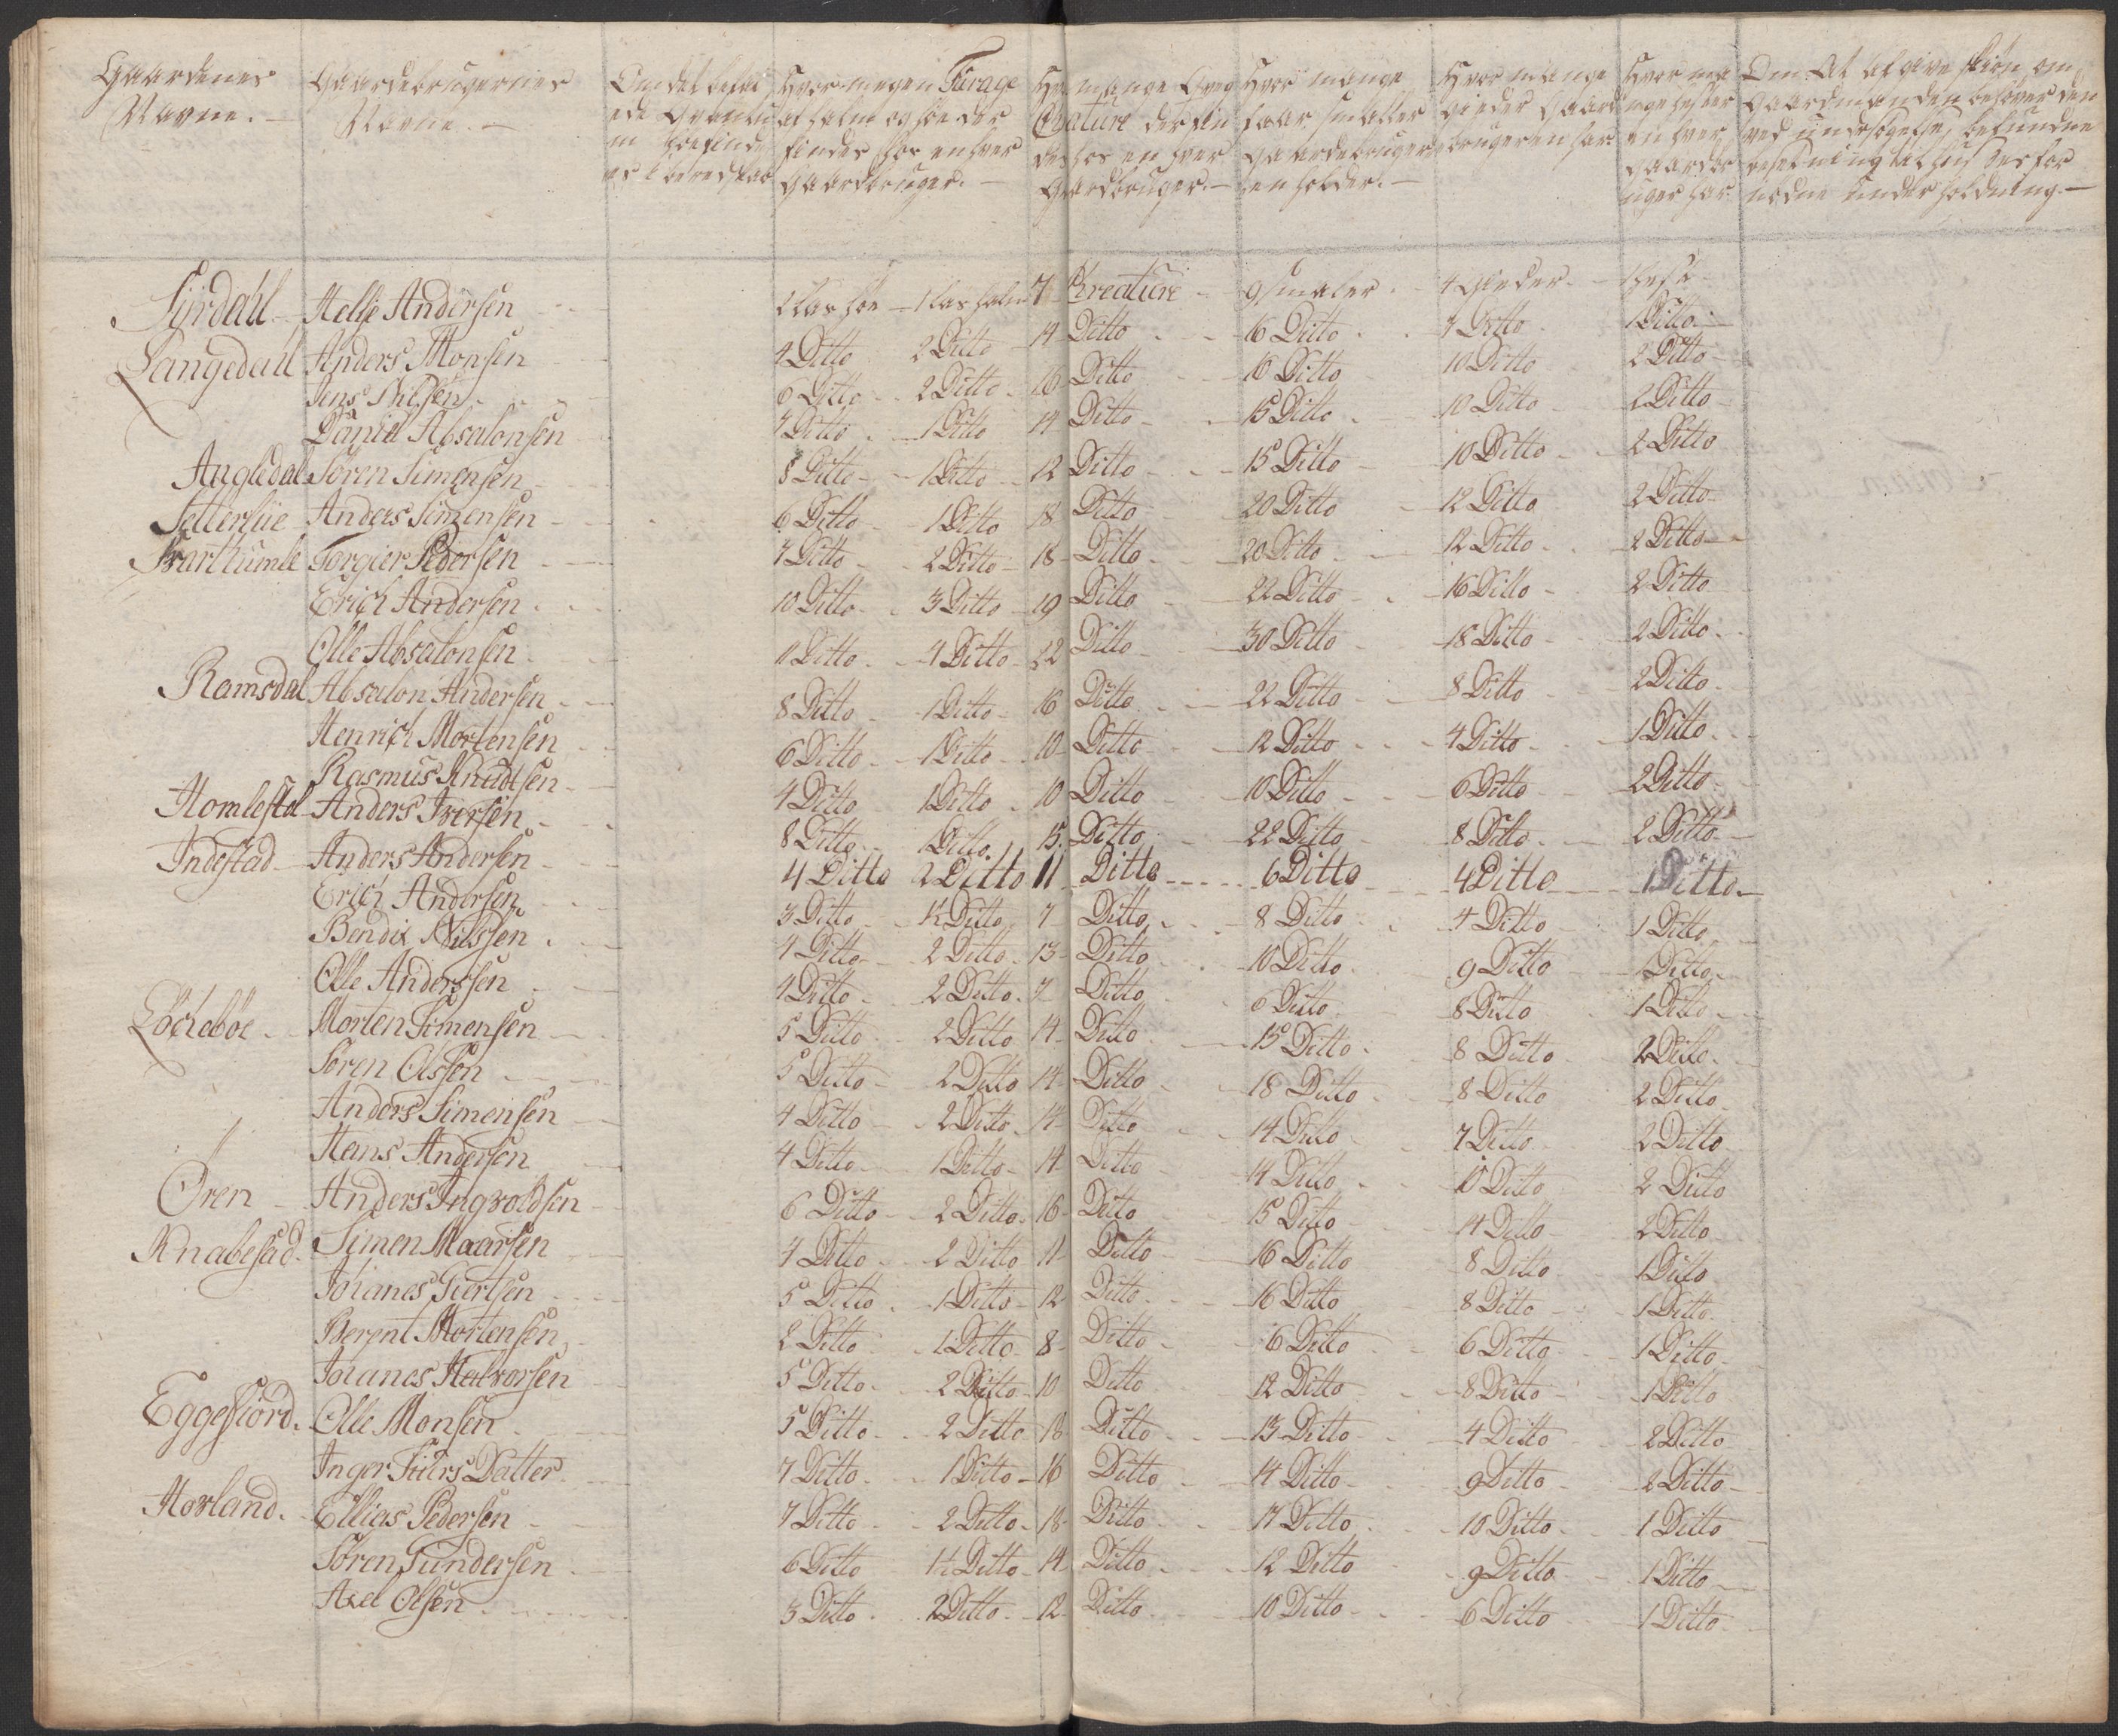 Gaardenes Navne. Gaardebrugernes Navne. Hvor megen Furage af halm og høe der findes hos en hver Gaardbruger. Creature der findes hos en hver Gaardbruger. Hvor mange faar, smaller Gaardebrugeren holder. Hvor mange gieder Gaardbrugeren har. Hvor mange hester en hver Gaardbruger har. Om At afgive skiøn, om Gaardmanden behøver den ved undersøgelse befundne besetning til sin Jords fornødne underholdning.
Surdahl Aelße Andersen 2 las høe 1 las halm 7 Kreature 9 smaler 4 Gieder 1 hest
Langedahl Anders Monsen 4 Ditto 2 Ditto 14 Ditto 16 Ditto 7 Ditto 1 Ditto
Jens Nilsen 6 Ditto 2 Ditto 16 Ditto 16 Ditto 10 Ditto 2 Ditto
Daniel Absalonsen 7 Ditto 1 Ditto 14 Ditto 15 Ditto 10 Ditto 2 Ditto
Angledal Søren Simensen 8 Ditto 1 Ditto 12 Ditto 15 Ditto 10 Ditto 2 Ditto
Setterlie Anders Simensen 6 Ditto 1 Ditto 18 Ditto 20 Ditto 12 Ditto 2 Ditto
Svarthumle Torgier Pedersen 7 Ditto 2 Ditto 18 Ditto 20 Ditto 12 Ditto 2 Ditto
Erich Andersen 10 Ditto 3 Ditto 19 Ditto 22 Ditto 16 Ditto 2 Ditto
Olle Absalonsen 11 Ditto 4 Ditto 22 Ditto 30 Ditto 18 Ditto 2 Ditto
Ramsdal Absalon Andersen 8 Ditto 1 Ditto 16 Ditto 22 Ditto 8 Ditto 2 Ditto
Henrich Mortensen 6 Ditto 1 Ditto 10 Ditto 12 Ditto 4 Ditto 1 Ditto
Rasmus Knudtsen 4 Ditto 1 Ditto 10 Ditto 10 Ditto 6 Ditto 2 Ditto
Homlestøl Anders Iversen 8 Ditto 1 Ditto 15 Ditto 22 Ditto 8 Ditto 2 Ditto
Indestad Anders Andersen 4 Ditto 2 Ditto 11 Ditto 6 Ditto 4 Ditto 1 Ditto
Erich Andersen 3 Ditto 1½ Ditto 7 Ditto 8 Ditto 4 Ditto 1 Ditto
Bendix Nilssen 4 Ditto 2 Ditto 13 Ditto 10 Ditto 9 Ditto 1 Ditto
Olle Anderssen 4 Ditto 2 Ditto 7 Ditto 6 Ditto 8 Ditto 1 Ditto
Løchebøe Morten Simensen 5 Ditto 2 Ditto 14 Ditto 15 Ditto 8 Ditto 2 Ditto
Søren Olsson 5 Ditto 2 Ditto 14 Ditto 18 Ditto 8 Ditto 2 Ditto
Anders Simensen 4 Ditto 2 Ditto 14 Ditto 14 Ditto 7 Ditto 2 Ditto
Hans Andersen 4 Ditto 1 Ditto 14 Ditto 14 Ditto 10 Ditto 2 Ditto
Øren Anders Ingvoldsen 6 Ditto 2 Ditto 16 Ditto 15 Ditto 14 Ditto 2 Ditto
Knabesad. Simen Maarsen 4 Ditto 2 Ditto 11 Ditto 16 Ditto 8 Ditto 1 Ditto
Johanes Giertsen 5 Ditto 1 Ditto 12 Ditto 16 Ditto 8 Ditto 1 Ditto
Berent Mortensen 2 Ditto 1 Ditto 8 Ditto 6 Ditto 6 Ditto 1 Ditto
Johanes Halvorsen 5 Ditto 2 Ditto 10 Ditto 12 Ditto 8 Ditto 1 Ditto
Eggesiord. Olle Monsen 5 Ditto 2 Ditto 18 Ditto 13 Ditto 4 Ditto 2 Ditto
Inger Siurs Datter 7 Ditto 1 Ditto 16 Ditto 14 Ditto 9 Ditto 2 Ditto
Hovland. Ellias Pedersen 7 Ditto 2 Ditto 18 Ditto 17 Ditto 10 Ditto 1 Ditto
Søren Gundersen 6 Ditto 1½ Ditto 14 Ditto 12 Ditto 9 Ditto 1 Ditto
Axel Olsen 3 Ditto 2 Ditto 12 Ditto 10 Ditto 6 Ditto 1 Ditto